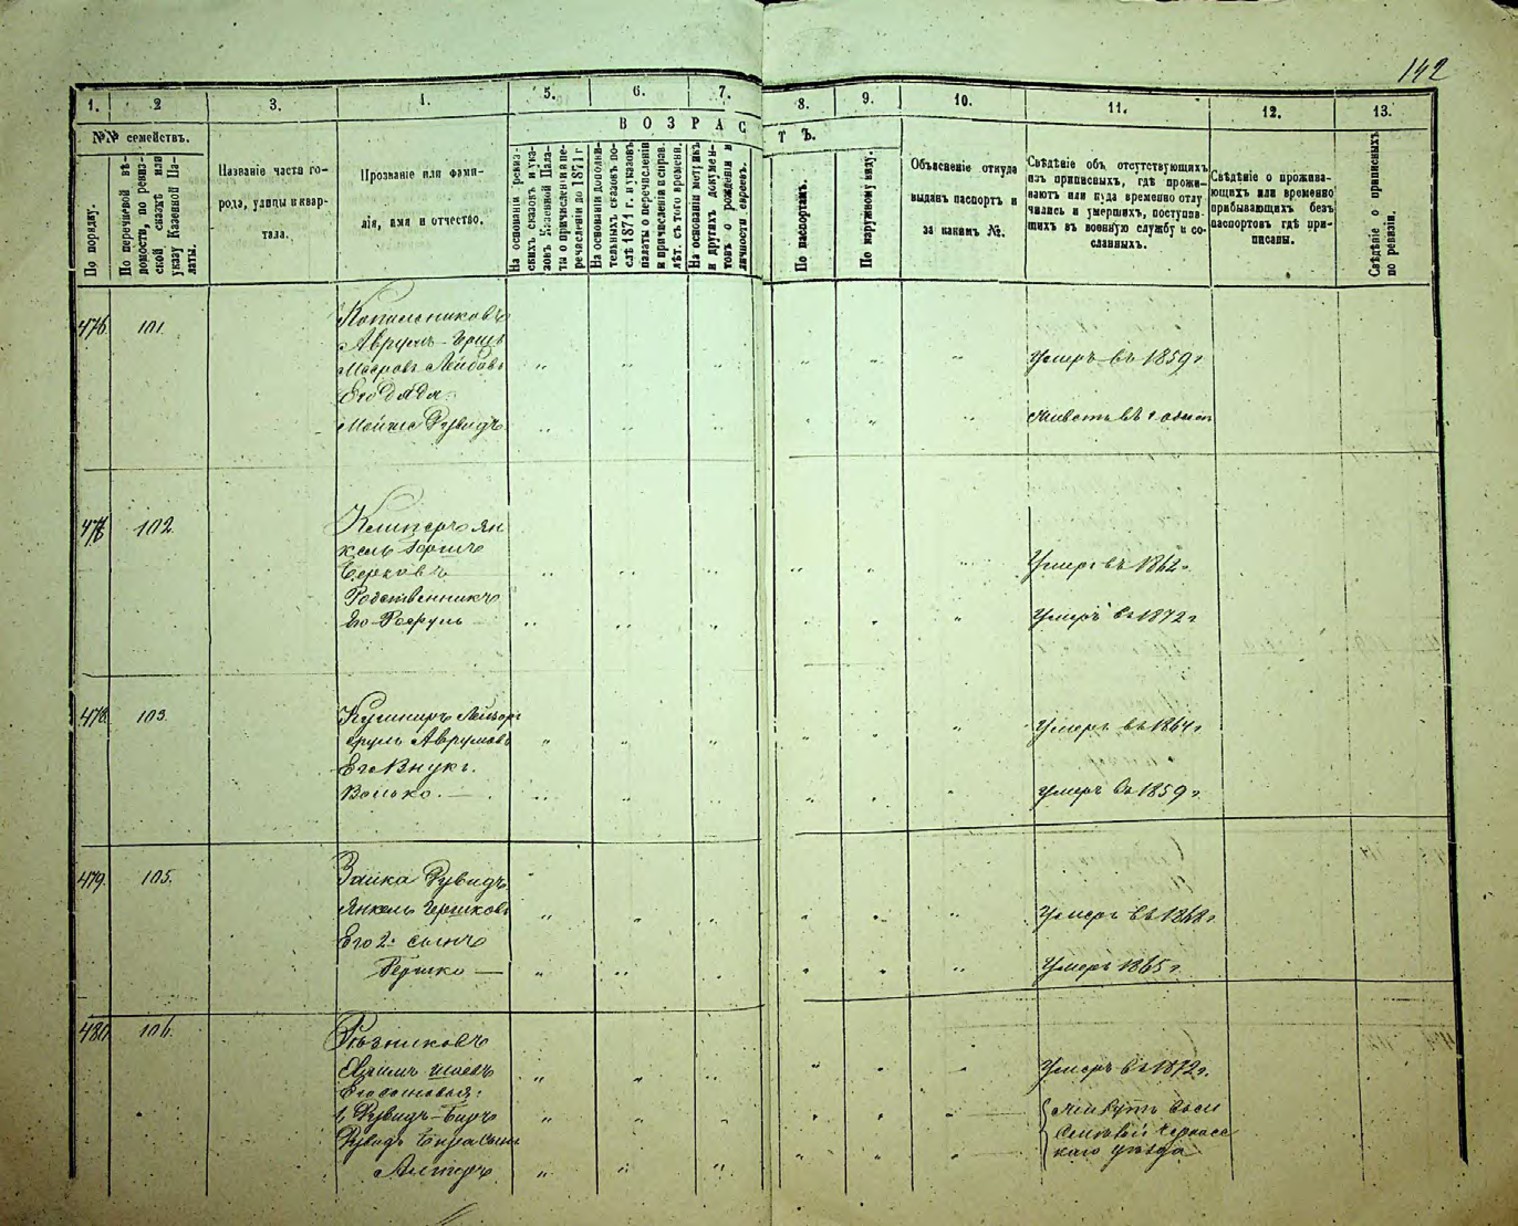 142
1. 2 3. 4. 5. 6. 7. 8. 9. 10. 11. 12. 13.
№№ семействъ.
ВОЗРАСТЪ.
По порядку.
По перечневой вѣ-
домости, по ревиз-
ской сказкѣ или
указу Казенной Па-
латы.
Названіе части го-
рода, улицы и квар-
тала.
Прозваніе или фами-
лія, имя и отчество.
На основаніи ревиз-
скихъ сказокъ и ука-
зовъ Казенной Пала-
ты о причисленіи и пе-
речисленіи до 1871 г
На основаніи дополни-
тельныхъ сказокъ по-
слѣ 1871 г. и указовъ
палаты о перечисленіи
и причисленіи и исправ.
лѣт. съ того времени.
На основаніи метрикъ
и другихъ докумен-
товъ о рожденіи и
личности евреевъ.
По паспортамъ.
По наружному виду.
Объясненіе откуда
выданъ паспортъ и
за какимъ №.
Свѣдѣніе объ отсутствующихъ
изъ приписныхъ, гдѣ прожи-
ваютъ или куда временно отлу
чились и умершихъ, поступив-
шихъ въ военную службу и со-
сланныхъ.
Свѣдѣніе о прожива-
ющихъ или временно
прибывающихъ безъ
паспортовъ гдѣ при-
писаны.
Свѣдѣніе о приписныхъ
по ревизіи.
476 101.
Аврумъ-
Лейбовъ Умеръ въ 1859 г
Его дядя
Рувидъ
477 102.
Янкель
Берковъ Умеръ въ 1862 г.
Родственникъ
Его Умеръ въ 1872 г
478. 103.
Кушниръ
Аврумовъ Умеръ въ 1864 г
Его Внукъ.
Волько. — Умеръ въ 1859 г
479. 105.
Заика Рувидъ
Янкель Гершковъ Умеръ въ
Его 2й сынъ
Гершко — Умеръ 1865 г
480 106.
Рѣзниковъ
Хаимъ Шаевъ Умеръ въ 1872 г.
Его сыновья:
1, Рувидъ-
Рувидъ
Черкасс
Алтеръ каго уѣзда